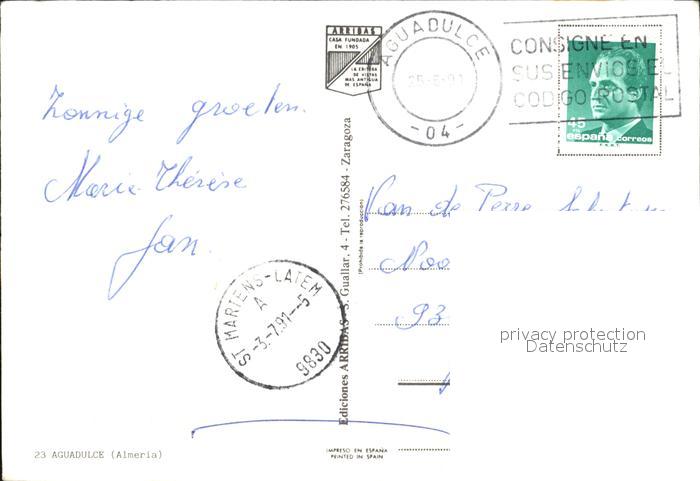 ARRIBAS
CASA FUNDADA
EN 1905
LA EDITORA
DE VISTAS
MAS ANTIGUA
DE ESPAÑA
AGUADULCE
-04-
CONSIGNE EN
SUS ENVIOS EL
CODIGO POSTAL
45
españa correos
F.N.M.T.
Zonnige groeten.
Marie-Thérèse
Jan.
ST MARTENS-LATEM
A
-3.-7.91--5
9830
Ediciones ARRIBAS - S. Guallar, 4 - Tel. 276584 - Zaragoza
(Prohibida la reproducción)
Van de Perre
Noo
93
privacy protection
Datenschutz
23 AGUADULCE (Almería)
IMPRESO EN ESPAÑA
PRINTED IN SPAIN